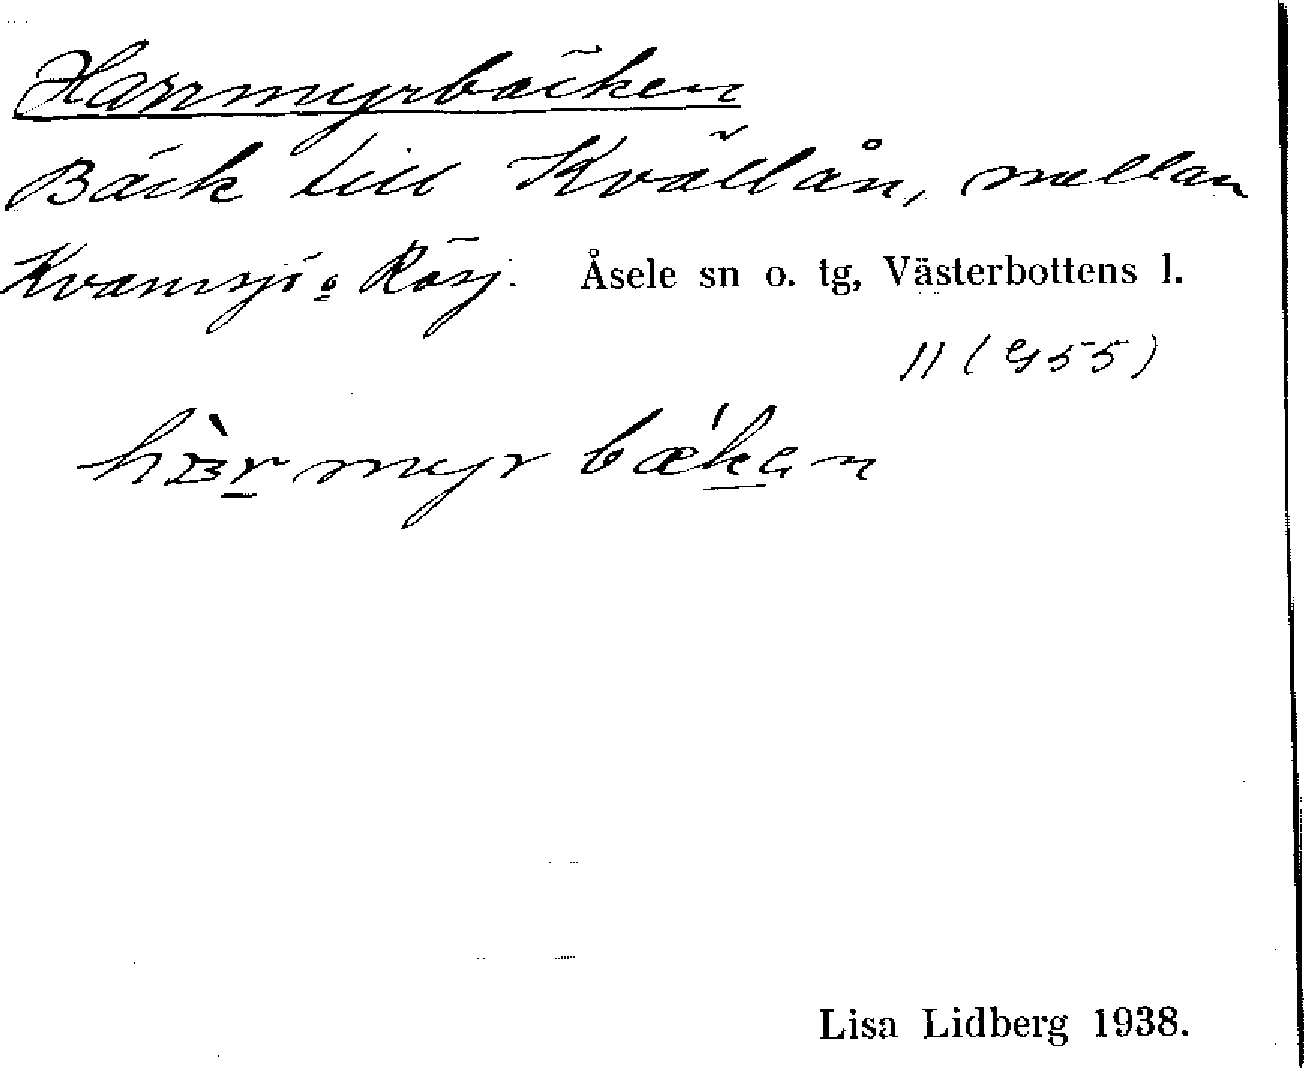 Harrmyrbäcken
Bäck till Kvällån, mellan
Kvamsjö o Rösj. Åsele sn o. tg, Västerbottens l.
11 (955)
myr bækan
Lisa Lidberg 1938.